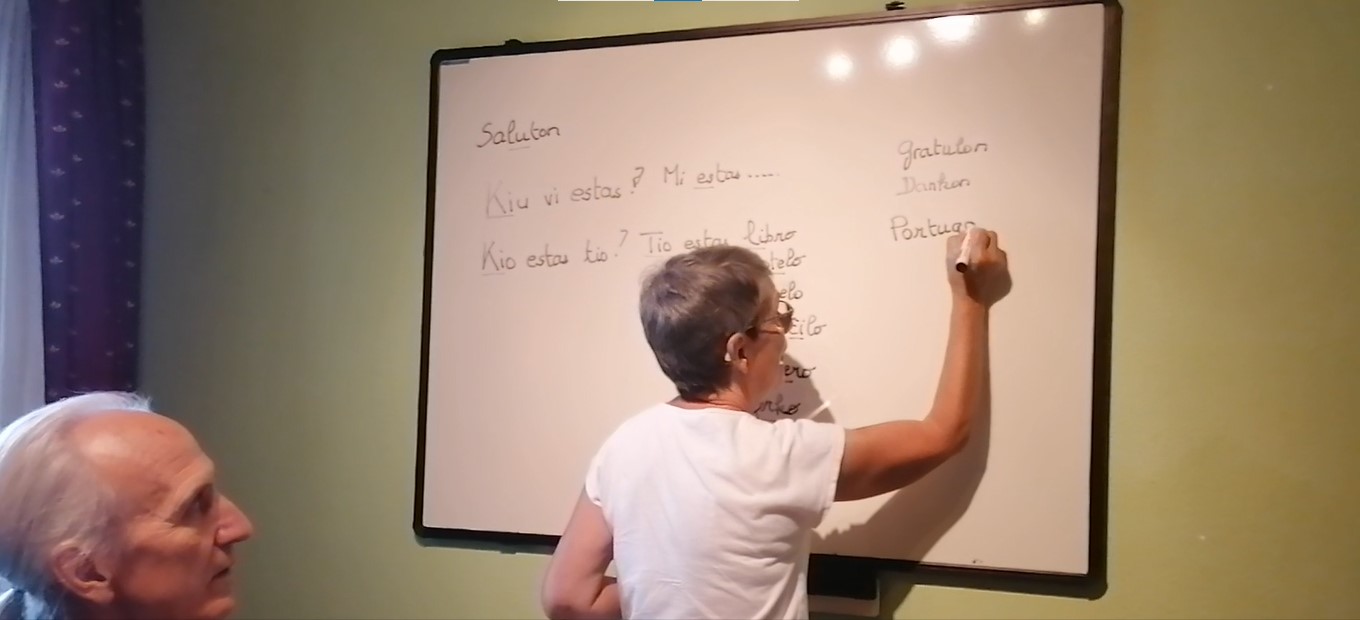 Saluton
Kiu vi estas? Mi estas.....
Kio estas tio? Tio estas libro
telo
elo
ĉilo
ero
Gratulon
Dankon
Portuga